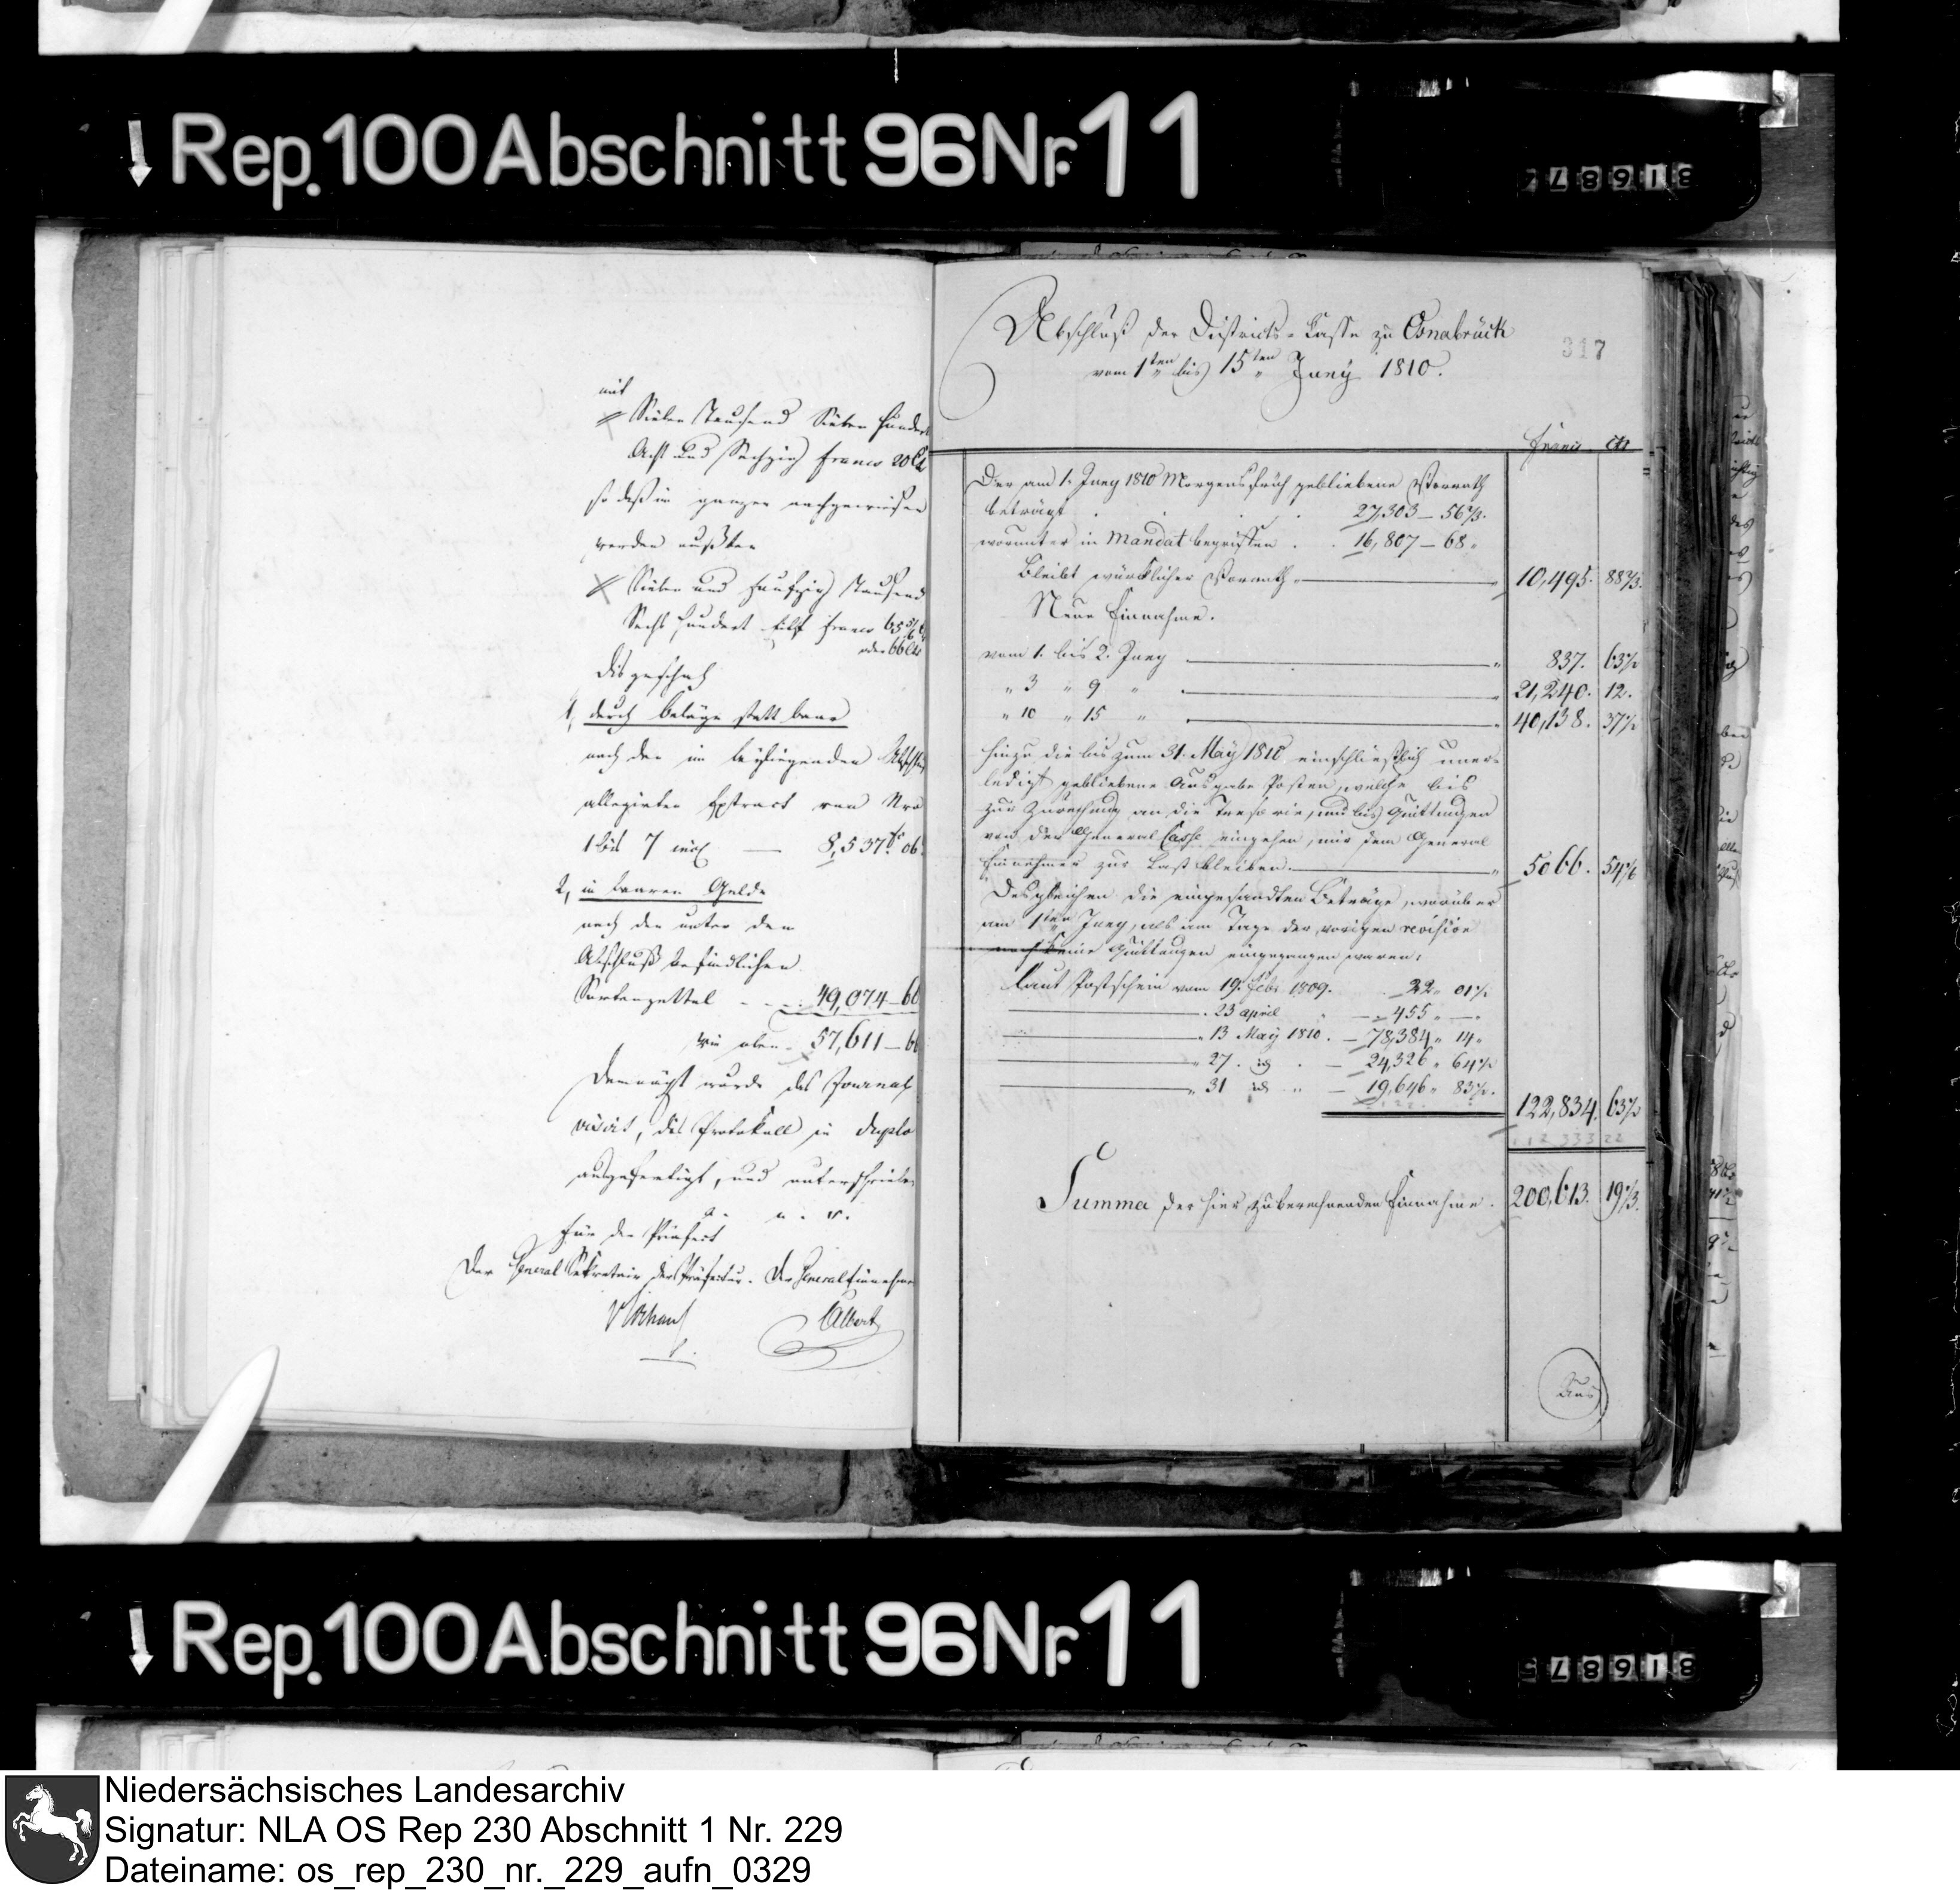 Rep. 100 Abschnitt 96 Nr. 11
mit
Sieben Tausend Sieben Hundert
Acht und Sechzig Francs 20 Cts
so daß im ganzen nachgewiesen
werden mußten
Sieben und Funfzig Tausend
Sechs Hundert Eilf Francs 65 5/6 Cts
oder 66 Cts
Dis geschah
1, durch Beläge statt baar
nach den im beyliegenden Abschluß
allegirten Extract von Nro
1 bis 7 incl — 8,537 fr 06
2, in baaren Gelde
nach den unter dem
Abschluß befindlichen
Sortenzettel - - - 49,074–60
wie oben - 57,611–66
Demnächst wurde das Journal
visirt, das Protokoll in duplo
ausgefertigt, und unterschrieben
a. u. s.
Für den Präfect
Der General Sekretair der Präfectur. Der General Einnehmer
Albert
Abschluß der Districts-Casse zu Osnabrück
vom 1ten bis 15ten Juny 1810.
317
Francs. Cts
Der am 1. Juny 1810 Morgens früh gebliebene Vorrath
beträgt . . . 27,303 – 56 2/3.
worunter in Mandat begriffen . . 16,807 – 68 "
Bleibt würklicher Vorrath " — " 10,495. 88 2/3.
Neue Einnahme.
vom 1. bis 2. Juny — " 837. 63 1/2
" 3 " 9 " — " 21,240. 12.
" 10 " 15 " — " 40,138. 37 1/2
Hinzu die bis zum 31. May 1810 einschließlich uner-
ledigt gebliebene Ausgabe Posten, welche bis
zur Zurechnung an die Tresorerie, und bis Quittungen
von der General Casse eingehen, mir dem General
Einnehmer zur Last bleiben. — " 5066. 54 1/6
Desgleichen die eingesandten Beträge, worüber
am 1ten Juny, als am Tage der vorigen revision
noch keine Quittungen eingegangen waren:
Laut Postschein vom 19. Febr. 1809. . 22 " 01 1/2
— . 23 april " — " 455 " — "
— " 13 May 1810. — 78,384 " 14 "
— " 27. id . — 24,326 " 64 1/2
— " 31 id " — 19,646 " 83 1/2.
122,834. 63 1/2
Summa der hier zu berechnenden Einnahme. 200,613. 19 1/3.
Aus
Rep. 100 Abschnitt 96 Nr. 11
Niedersächsisches Landesarchiv
Signatur: NLA OS Rep 230 Abschnitt 1 Nr. 229
Dateiname: os_rep_230_nr._229_aufn_0329